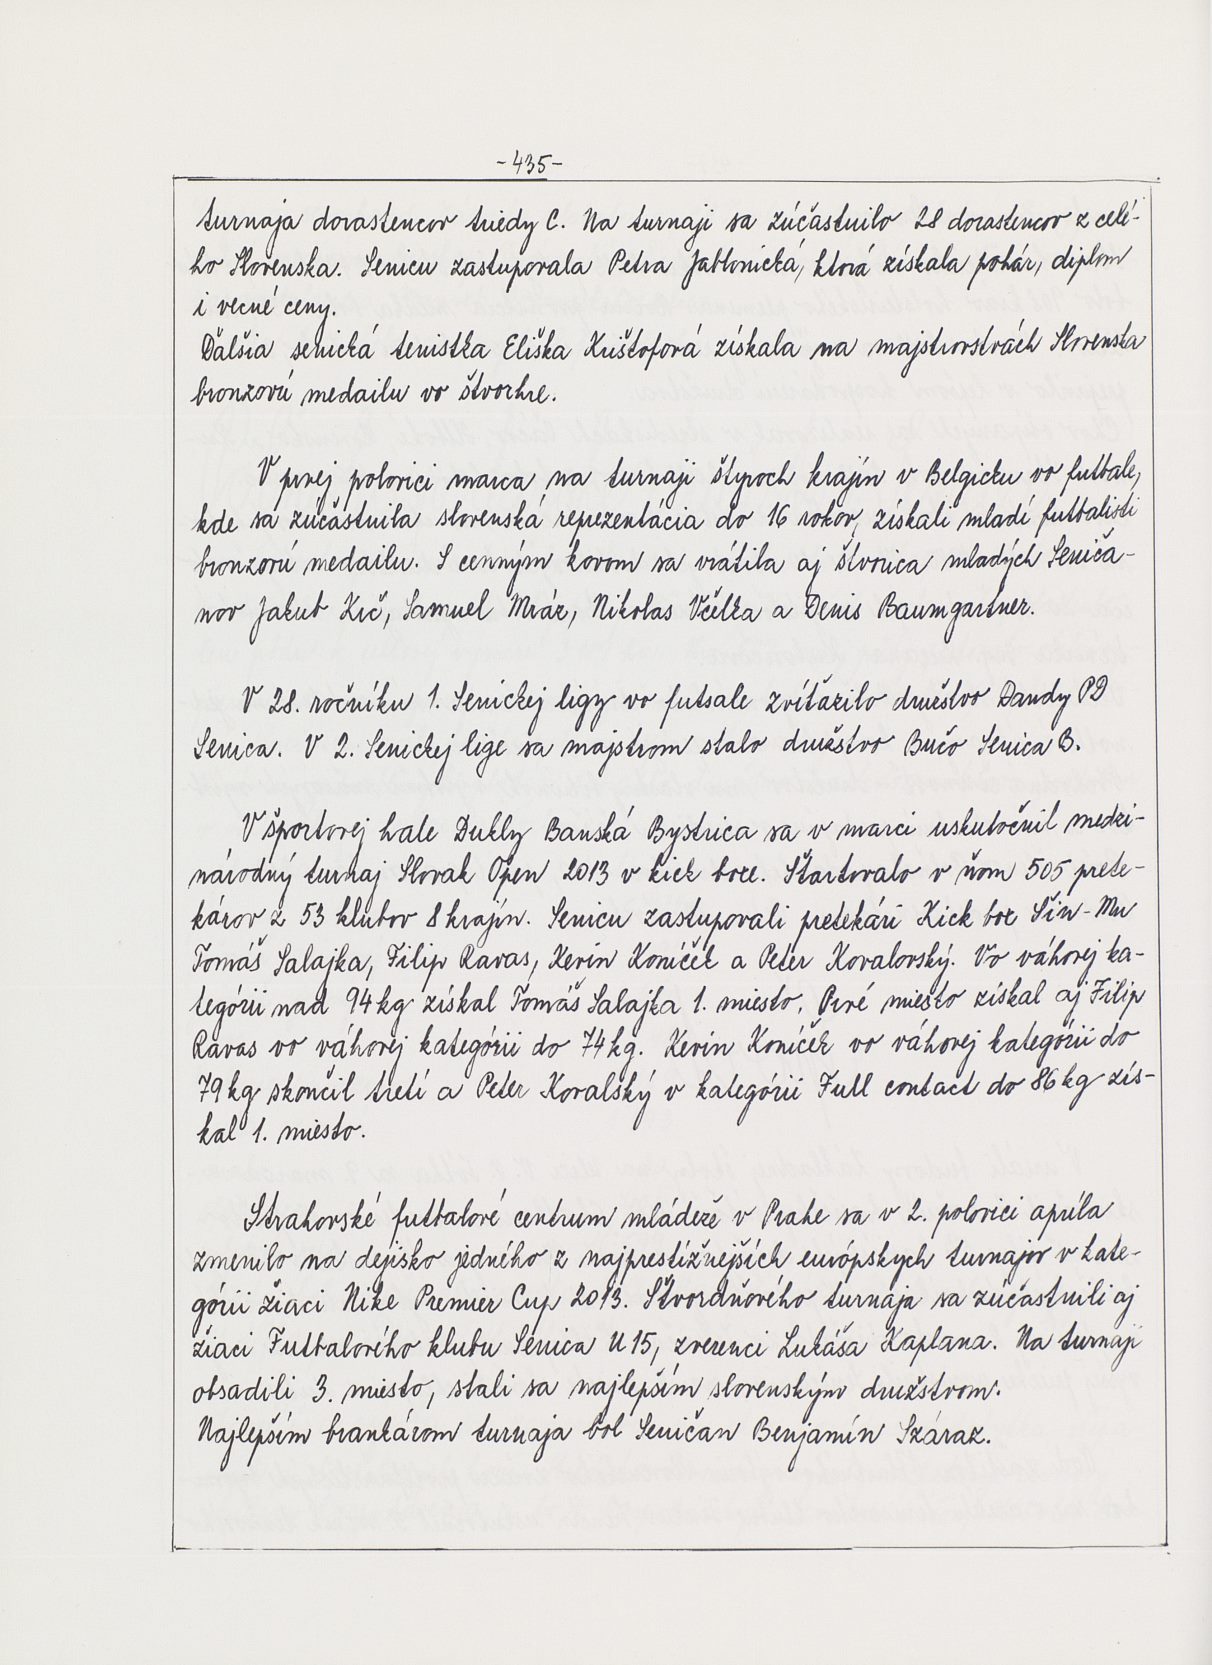 -435-
turnaja dorastencov triedy C. Na turnaji sa zúčastnilo 28 dorastencov z celé-
ho Slovenska. Senicu zastupovala Petra Jablonická, ktorá získala pohár, diplom
i vecné ceny.
Ďalšia senická tenistka Eliška Krištofová získala na majstrovstvách Slovenska
bronzovú medailu vo štvorhre.
V prvej polovici marca na turnaji štyroch krajín v Belgicku vo futbale,
kde sa zúčastnila slovenská reprezentácia do 16 rokov, získali mladí futbalisti
bronzovú medailu. S cenným kovom sa vrátila aj štvorica mladých Seniča-
nov Jakub Kič, Samuel Mráz, Nikolas Včelka a Denis Baumgartner.
V 28. ročníku 1. Senickej ligy vo futsale zvíťazilo družstvo Dandy PD
Senica. V 2. Senickej lige sa majstrom stalo družstvo Bučo Senica B.
V športovej hale Dukly Banská Bystrica sa v marci uskutočnil medzi-
národný turnaj Slovak Open 2013 v kick boxe. Štartovalo v ňom 505 prete-
károv z 53 klubov 8 krajín. Senicu zastupovali pretekári Kick box Šin-Mu
Tomáš Salajka, Filip Ravas, Kevin Koníček a Peter Kovalovský. Vo váhovej ka-
tegórii nad 94 kg získal Tomáš Salajka 1. miesto. Prvé miesto získal aj Filip
Ravas vo váhovej kategórii do 74 kg. Kevin Koníček vo váhovej kategórii do
79 kg skončil tretí a Peter Kovalský v kategórii Full contact do 86 kg zís-
kal 1. miesto.
Strahovské futbalové centrum mládeže v Prahe sa v 2. polovici apríla
zmenilo na dejisko jedného z najprestížnejších európskych turnajov v kate-
górii žiaci Nike Premier Cup 2013. Štvordňového turnaja sa zúčastnili aj
žiaci Futbalového klubu Senica U 15, zverenci Lukáša Kaplana. Na turnaji
obsadili 3. miesto, stali sa najlepším slovenským družstvom.
Najlepším brankárom turnaja bol Seničan Benjamín Száraz.